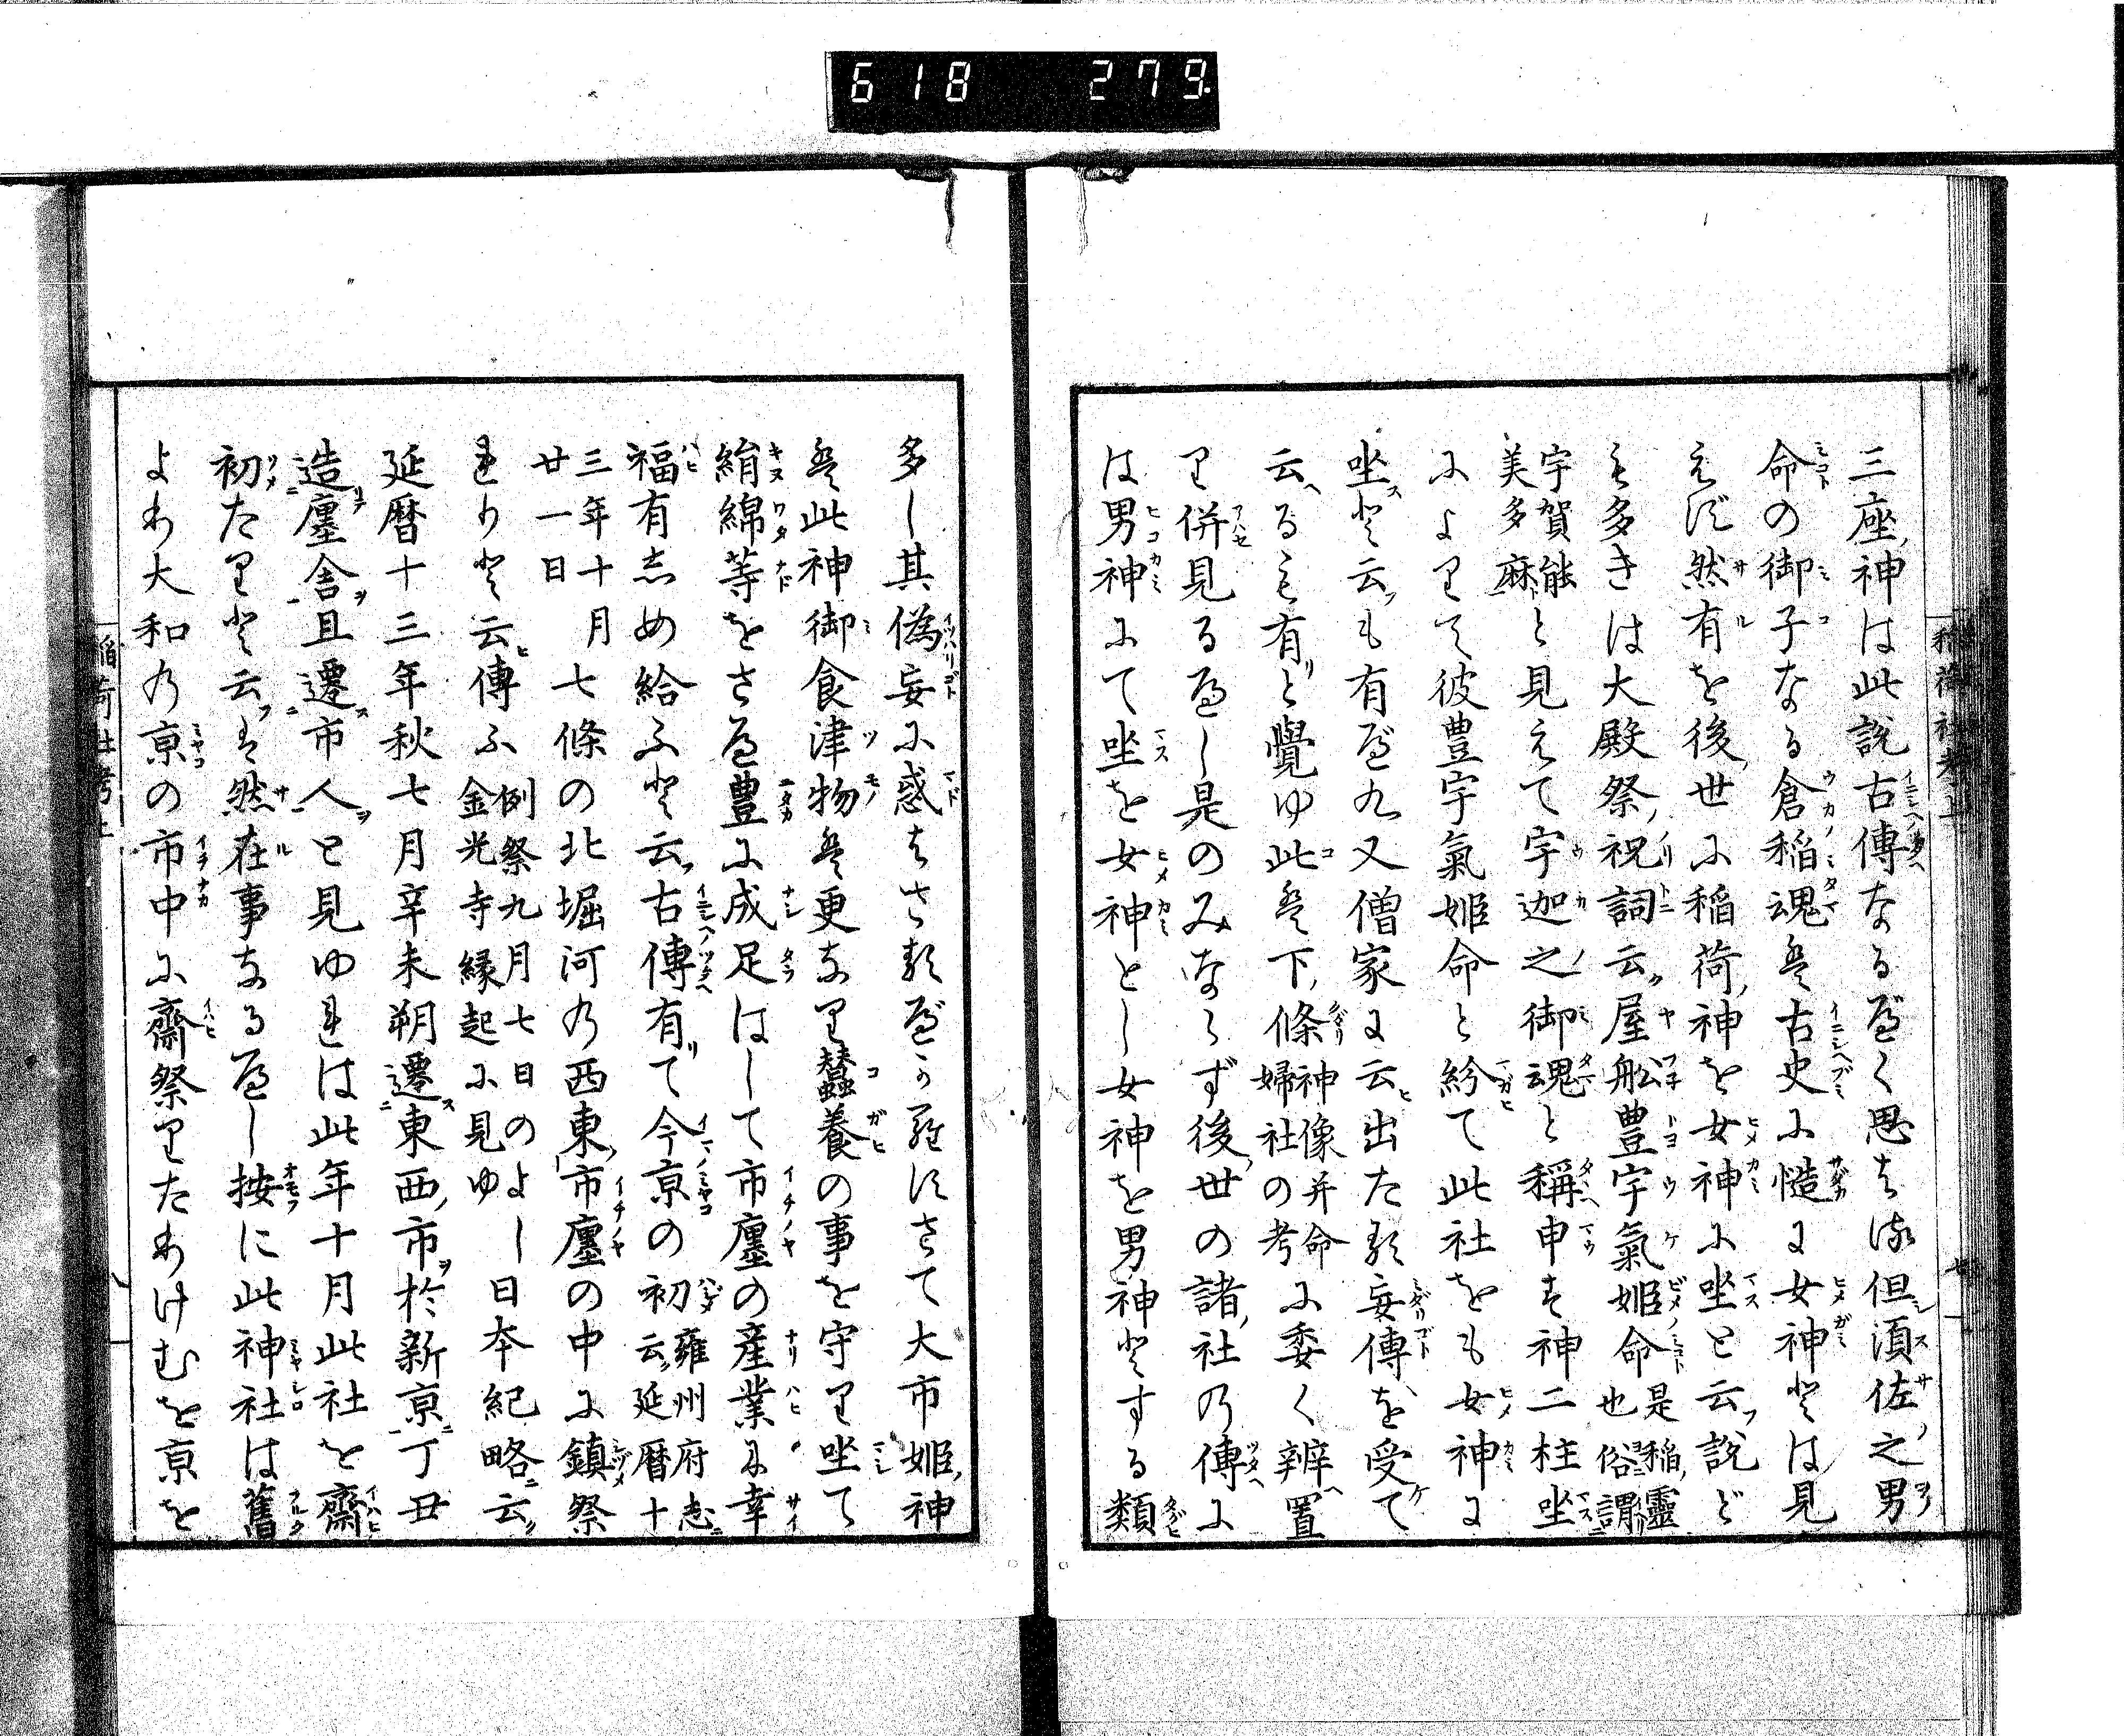 618 279
稲荷社考上
三座神は此説古傳なるべく思はる但須佐之男
命の御子なる倉稲魂は古史に慥に女神とは見
えず然有を後世に稲荷神を女神に坐と云説ど
も多きは大殿祭祝詞云屋船豊宇氣姫命是稲靈也俗謂
宇賀能美多麻と見えて宇迦之御魂と稱申す神二柱坐
によりて彼豊宇氣姫命と紛て此社をも女神に
坐と云も有べし又僧家に云出たる妄傳を受て
云るも有と覺ゆ此は下條神像并命婦社の考に委く辨置
り併見るべし是のみならず後世の諸社の傳に
は男神にて坐を女神とし女神を男神とする類
多し其偽妄に惑はさるべからずさて大市姫神
は此神御食津物は更なり蠶養の事を守り坐て
絹綿等をさへ豊に成足はして市廛の産業に幸
福有しめ給ふと云古傳有て今京の初雍州府志云延暦十
三年十月廿一日七條の北堀河の西東市廛の中に鎮祭
れりと云傳ふ例祭九月七日のよし金光寺縁起に見ゆ日本紀略云
延暦十三年秋七月辛未朔遷東西市於新京丁丑
造廛舎且遷市人と見ゆれは此年十月此社を齋
初たりと云は然在事なるべし按に此神社は舊
よりり大和の京の市中に齋祭りたりけむを京を
稲荷社考上